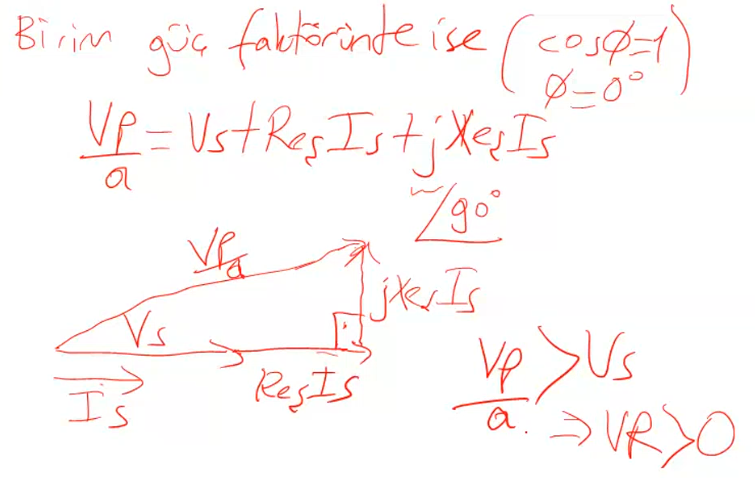 Birim güç faktöründe ise (cosφ=1
φ=0°)
Vp/a = Vs+ReşIs+jXeşIs
∠90°
Vp/a
jXeşIs
Vs
Is
ReşIs
Vp/a > Vs
⇒ VR>0